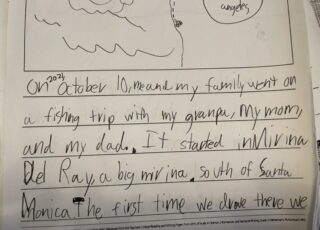 angeles
On 2024 October 10, me and my family went on
a fishng trip with my granpa, My mom,
and my dad. It started in Mirina
Del Ray, a big mirina. south of Santa
Monica The first time we drove there we